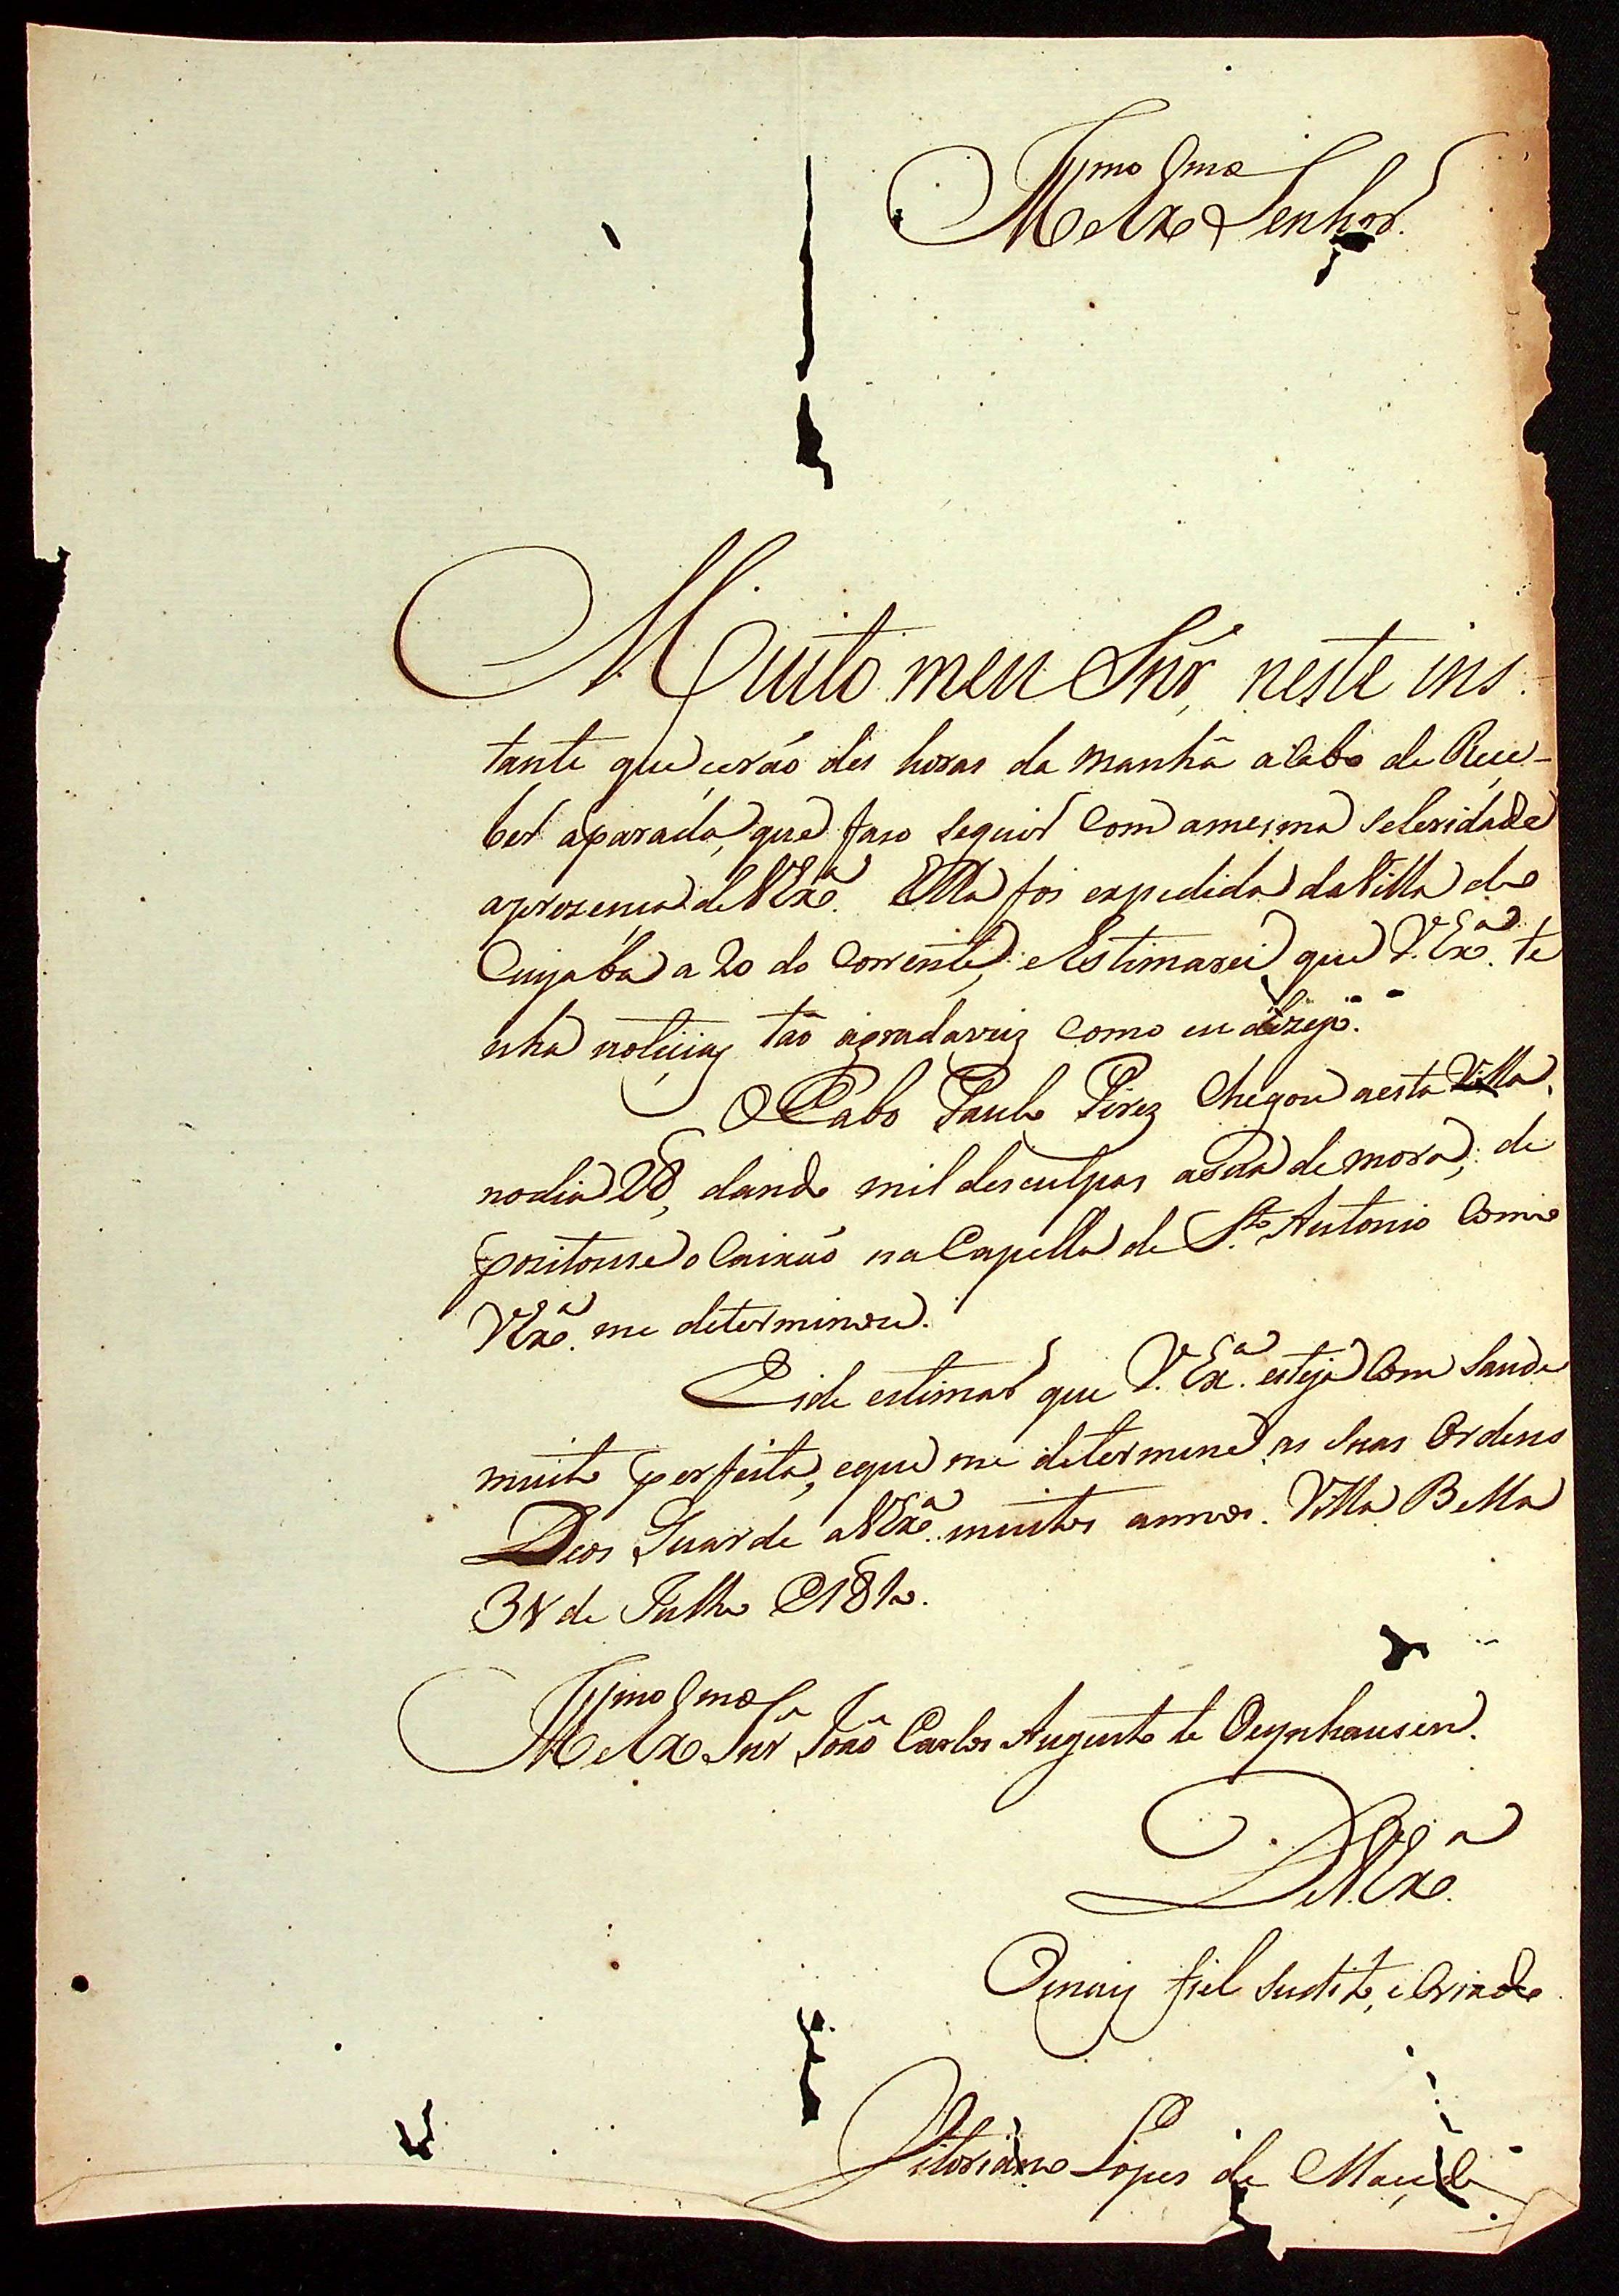 Illmo e Exmo Senhor.
Muito meu Snr, neste ins-
tante que cerão des horas da manhã acabo de Rece-
ber aparada, que faso seguir com amesma seleridade
aprezença de VExa. Ella foi expedida da Villa de
Cuyabá a 20 do corrente, eEstimarei que V.Exa. te
nha noticias tão agradaveiz como eu dezejo.
O Cabo Paulo Pirez chegou aesta Villa,
nodia 28, dando mil desculpas asua demora; de
pozitouse o Caixão na Capella de Sto Antonio como
VExa. me determinou.
Eide estimar que V. Exa. esteja com saude
muito perfeita, eque me determine as suas Ordens
Deos Guarde aVExa. muitos annos. Villa Bella
31 de Julho de 1810.
Illmo e Exmo Snr João Carlos Augusto de Oeynhausen.
De V.Exa.
Omais fiel sudito, e Criado
Vitoriano Lopes de Macedo